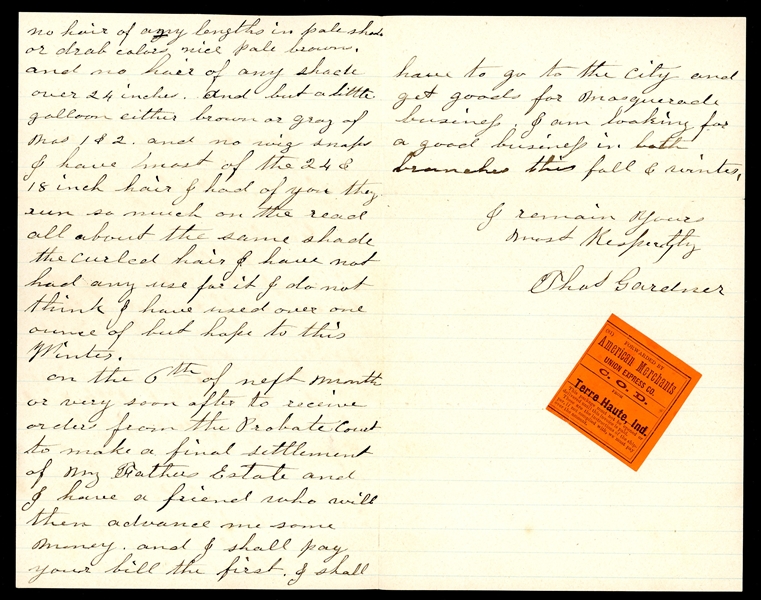 no hair of any lengths in pale shade
or drab colors, nice pale brown.
and no hair of any shade
over 24 inches. and but a little
galloon either brown or gray of
Nos 1 & 2. and no wig snaps
I have most of the 24 &
18 inch hair I had of you they
run so much on the read
all about the same shade
the curled hair I have not
had any use for it I do not
think I have used over one
ounce of but hope to this
Winter.
on the 6th of next Month
or very soon after to receive
orders from the Probate Court
to make a final settlement
of My Fathers Estate and
I have a friend who will
then advance me some
Money. and I shall pay
your bill the first. I shall
have to go to the City and
get goods for Masquerade
business. I am looking for
a good business in both
branches this fall & winter.
I remain Yours
Most Respectfly
Thos Gardner
FORWARDED BY
American Merchants
UNION EXPRESS CO.
C. O. D.
FROM
Terre Haute, Ind.